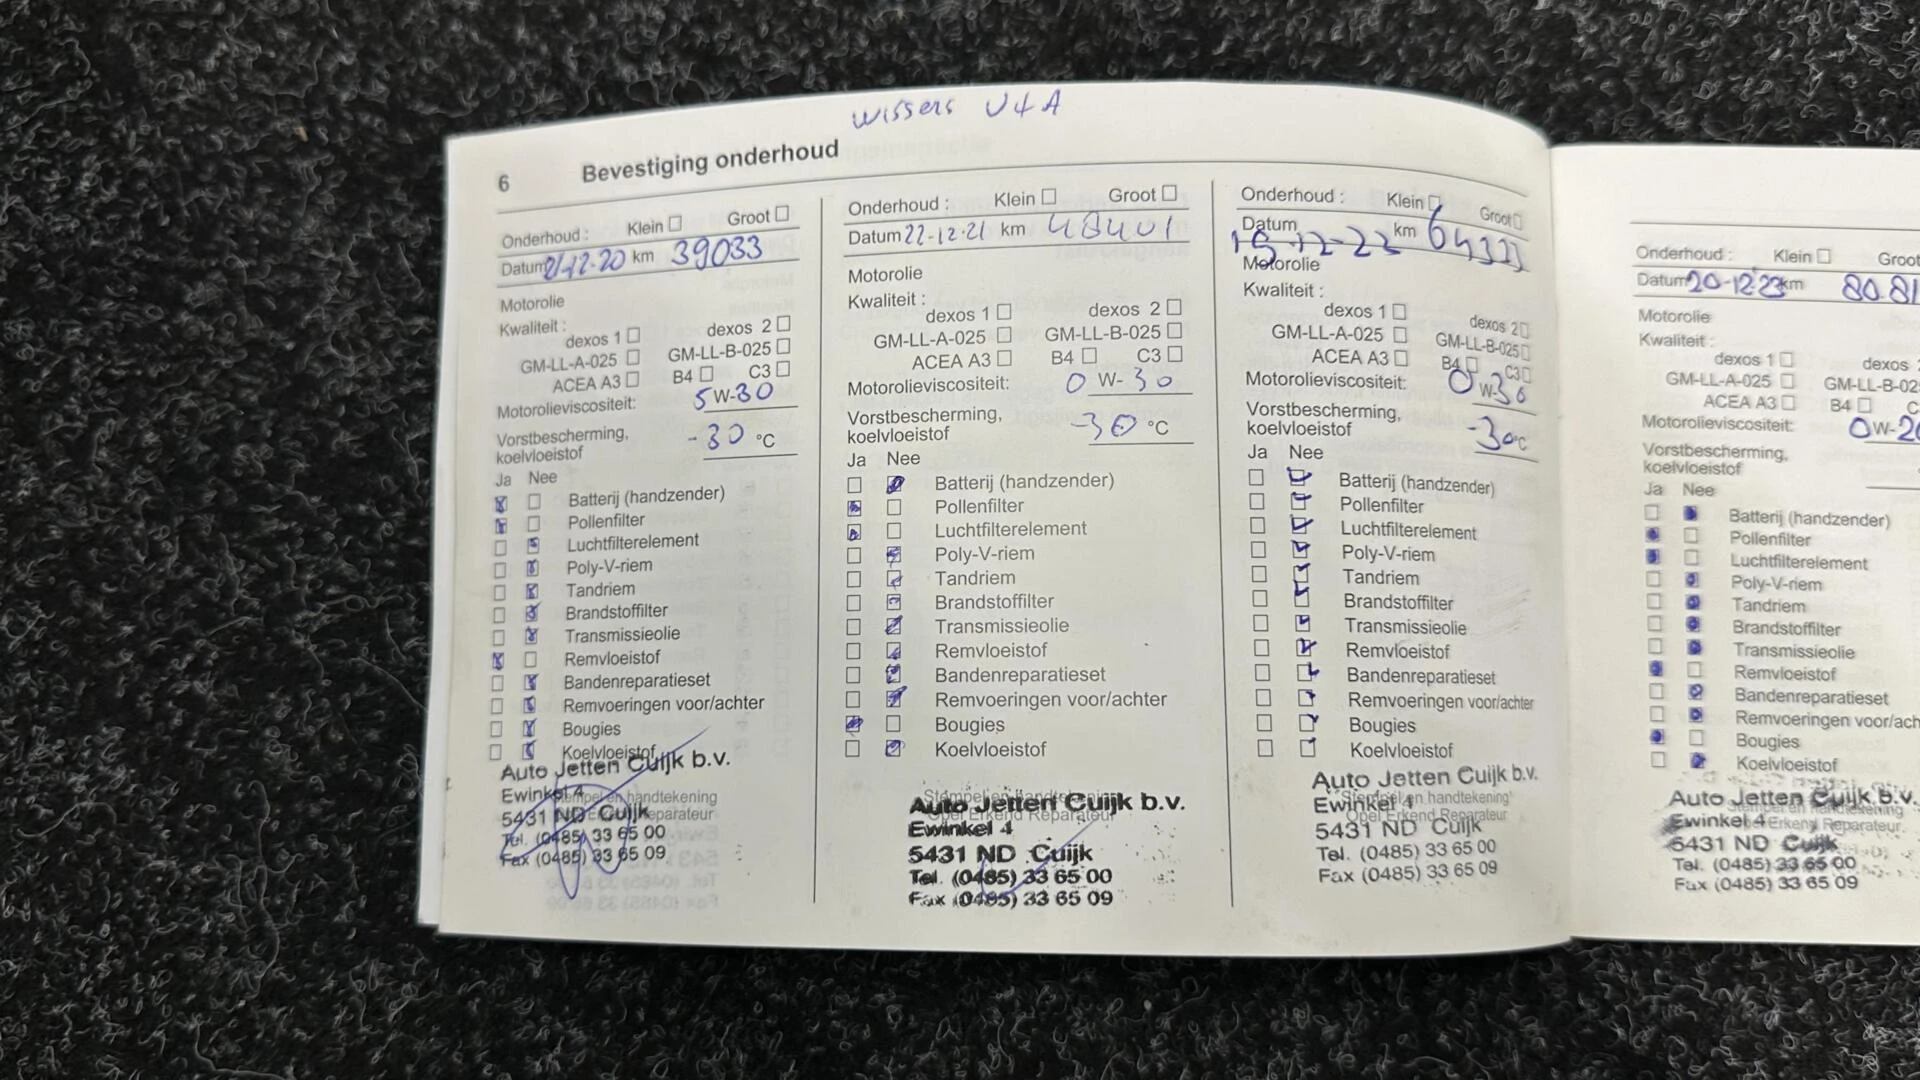 wissers V+A
6 Bevestiging onderhoud
Onderhoud : Klein Groot
Datum 21-12-20 km 39033
Motorolie
Kwaliteit :
dexos 1 dexos 2
GM-LL-A-025 GM-LL-B-025
ACEA A3 B4 C3
Motorolieviscositeit: 5 W-30
Vorstbescherming,
koelvloeistof -30 °C
Ja Nee
Batterij (handzender)
Pollenfilter
Luchtfilterelement
Poly-V-riem
Tandriem
Brandstoffilter
Transmissieolie
Remvloeistof
Bandenreparatieset
Remvoeringen voor/achter
Bougies
Koelvloeistof
Auto Jetten Cuijk b.v.
Ewinkel 4
Stempel en handtekening
5431 ND Cuijk
Reparateur
Tel. (0485) 33 65 00
Fax (0485) 33 65 09
Onderhoud : Klein Groot
Datum 22-12-21 km 48401
Motorolie
Kwaliteit :
dexos 1 dexos 2
GM-LL-A-025 GM-LL-B-025
ACEA A3 B4 C3
Motorolieviscositeit: 0 W-30
Vorstbescherming,
koelvloeistof -30 °C
Ja Nee
Batterij (handzender)
Pollenfilter
Luchtfilterelement
Poly-V-riem
Tandriem
Brandstoffilter
Transmissieolie
Remvloeistof
Bandenreparatieset
Remvoeringen voor/achter
Bougies
Koelvloeistof
Stempel en handtekening
Auto Jetten Cuijk b.v.
Opel Erkend Reparateur
Ewinkel 4
5431 ND Cuijk
Tel. (0485) 33 65 00
Fax (0485) 33 65 09
Onderhoud : Klein Groot
Datum km
Motorolie
Kwaliteit :
dexos 1 dexos 2
GM-LL-A-025 GM-LL-B-025
ACEA A3 B4 C3
Motorolieviscositeit: 0 W-30
Vorstbescherming,
koelvloeistof -30°C
Ja Nee
Batterij (handzender)
Pollenfilter
Luchtfilterelement
Poly-V-riem
Tandriem
Brandstoffilter
Transmissieolie
Remvloeistof
Bandenreparatieset
Remvoeringen voor/achter
Bougies
Koelvloeistof
Auto Jetten Cuijk b.v.
Stempel en handtekening
Ewinkel 4
Opel Erkend Reparateur
5431 ND Cuijk
Tel. (0485) 33 65 00
Fax (0485) 33 65 09
Onderhoud : Klein Groot
Datum 20-12-23 km 80.81
Motorolie
Kwaliteit :
dexos 1 dexos
GM-LL-A-025 GM-LL-B-02
ACEA A3 B4 C
Motorolieviscositeit: 0 W-20
Vorstbescherming,
koelvloeistof
Ja Nee
Batterij (handzender)
Pollenfilter
Luchtfilterelement
Poly-V-riem
Tandriem
Brandstoffilter
Transmissieolie
Remvloeistof
Bandenreparatieset
Remvoeringen voor/ach
Bougies
Koelvloeistof
Auto Jetten Cuijk b.v.
Stempel en handtekening
Ewinkel 4
Erkend Reparateur
5431 ND Cuijk
Tel. (0485) 33 65 00
Fax (0485) 33 65 09